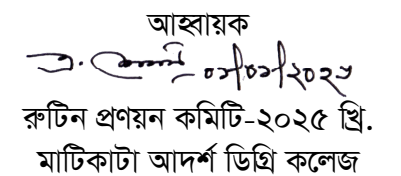 আহ্বায়ক
রুটিন প্রণয়ন কমিটি-২০২৫ খ্রি.
মাটিকাটা আদর্শ ডিগ্রি কলেজ